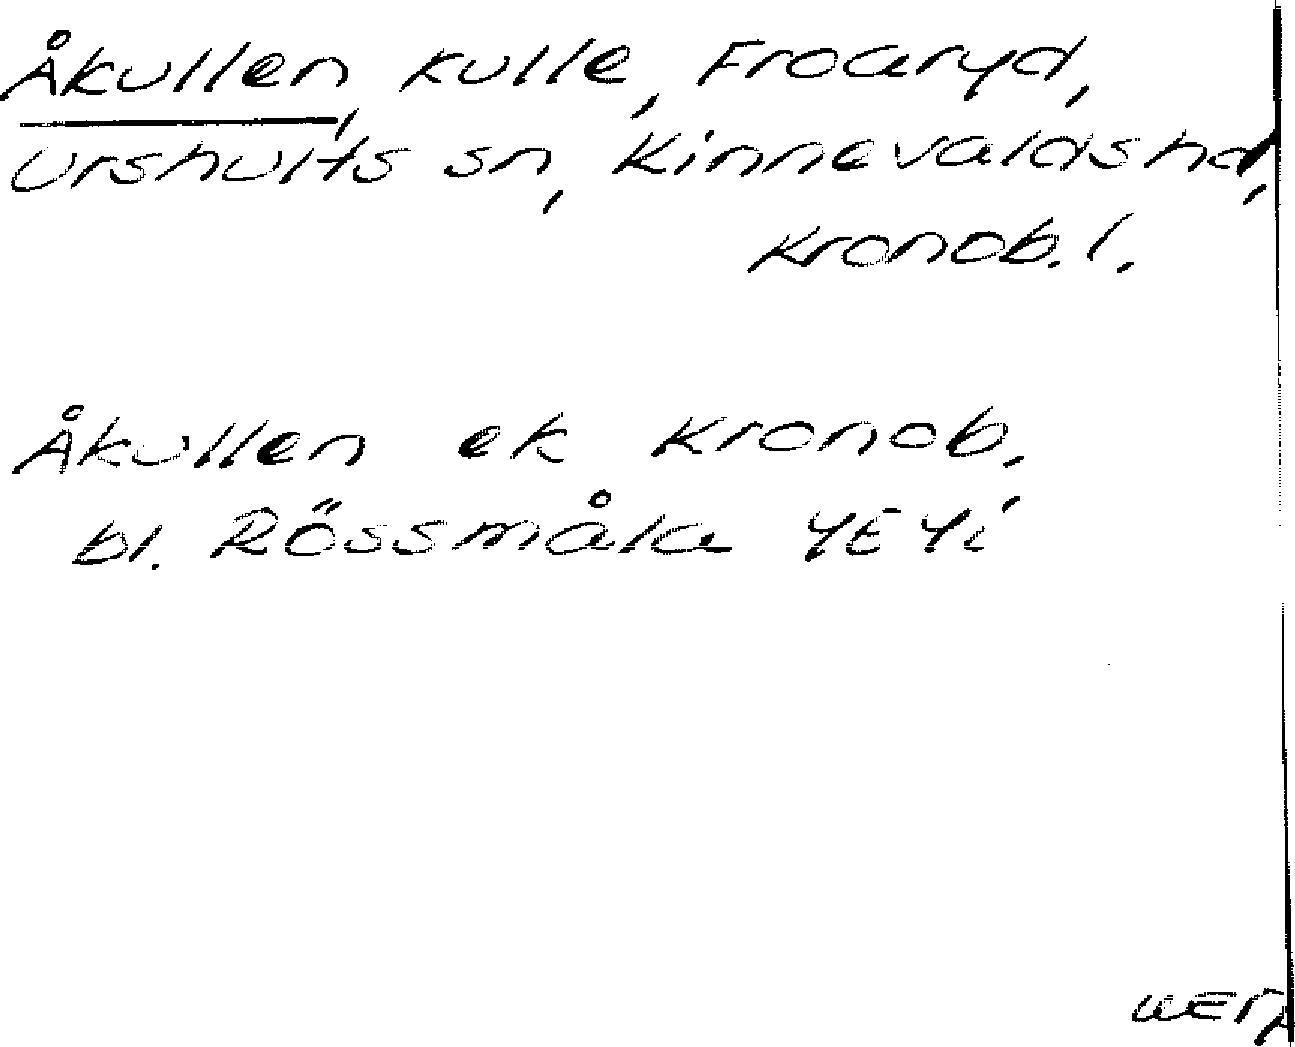 Åkullen, kulle, Froaryd,
Urshults sn, Kinnevalds hd,
Kronob. l.
Åkullen ek Kronob.
bl. Rössmåla 4E 4i